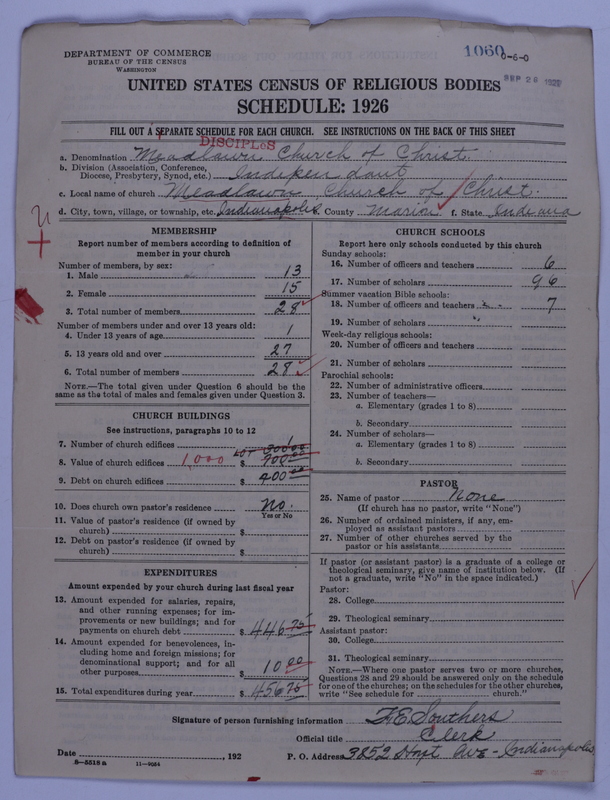 DEPARTMENT OF COMMERCE
BUREAU OF THE CENSUS
WASHINGTON
1060 0-6-0
SEP 28 192
UNITED STATES CENSUS OF RELIGIOUS BODIES
SCHEDULE: 1926
FILL OUT A SEPARATE SCHEDULE FOR EACH CHURCH. SEE INSTRUCTIONS ON THE BACK OF THIS SHEET
DISCIPLES
a. Denomination Meadlawn Church of Christ.
b. Division (Association, Conference,
Diocese, Presbytery, Synod, etc.) Indipendant
c. Local name of church Meadlawn Church of Christ.
d. City, town, village, or township, etc. Indianapolis e. County Marion f. State Indiana
MEMBERSHIP
Report number of members according to definition of
member in your church
Number of members, by sex:
1. Male 13
2. Female 15
3. Total number of members 28
Number of members under and over 13 years old:
4. Under 13 years of age 1
5. 13 years old and over 27
6. Total number of members 28
NOTE.—The total given under Question 6 should be the
same as the total of males and females given under Question 3.
CHURCH BUILDINGS
See instructions, paragraphs 10 to 12
7. Number of church edifices 1
LOT 300.00
8. Value of church edifices 1,000 $ 700.00
9. Debt on church edifices $ 400.00
10. Does church own pastor's residence no.
Yes or No
11. Value of pastor's residence (if owned by
church) $
12. Debt on pastor's residence (if owned by
church) $
EXPENDITURES
Amount expended by your church during last fiscal year
13. Amount expended for salaries, repairs,
and other running expenses; for im-
provements or new buildings; and for
payments on church debt $ 446.75
14. Amount expended for benevolences, in-
cluding home and foreign missions; for
denominational support; and for all
other purposes $ 10.00
15. Total expenditures during year $ 456.75
CHURCH SCHOOLS
Report here only schools conducted by this church
Sunday schools:
16. Number of officers and teachers 6
17. Number of scholars 96
Summer vacation Bible schools:
18. Number of officers and teachers 7
19. Number of scholars
Week-day religious schools:
20. Number of officers and teachers
21. Number of scholars
Parochial schools:
22. Number of administrative officers
23. Number of teachers—
a. Elementary (grades 1 to 8)
b. Secondary
24. Number of scholars—
a. Elementary (grades 1 to 8)
b. Secondary
PASTOR
25. Name of pastor None
(If church has no pastor, write "None")
26. Number of ordained ministers, if any, em-
ployed as assistant pastors
27. Number of other churches served by the
pastor or his assistants
If pastor (or assistant pastor) is a graduate of a college or
theological seminary, give name of institution below. (If
not a graduate, write "No" in the space indicated.)
Pastor:
28. College
29. Theological seminary
Assistant pastor:
30. College
31. Theological seminary
NOTE.—Where one pastor serves two or more churches,
Questions 28 and 29 should be answered only on the schedule
for one of the churches; on the schedules for the other churches,
write "See schedule for church."
Signature of person furnishing information F.E. Southers
Official title Clerk
Date , 192 P. O. Address 3852 Hoyt Ave - Indianapolis
8-5518 a 11-8684